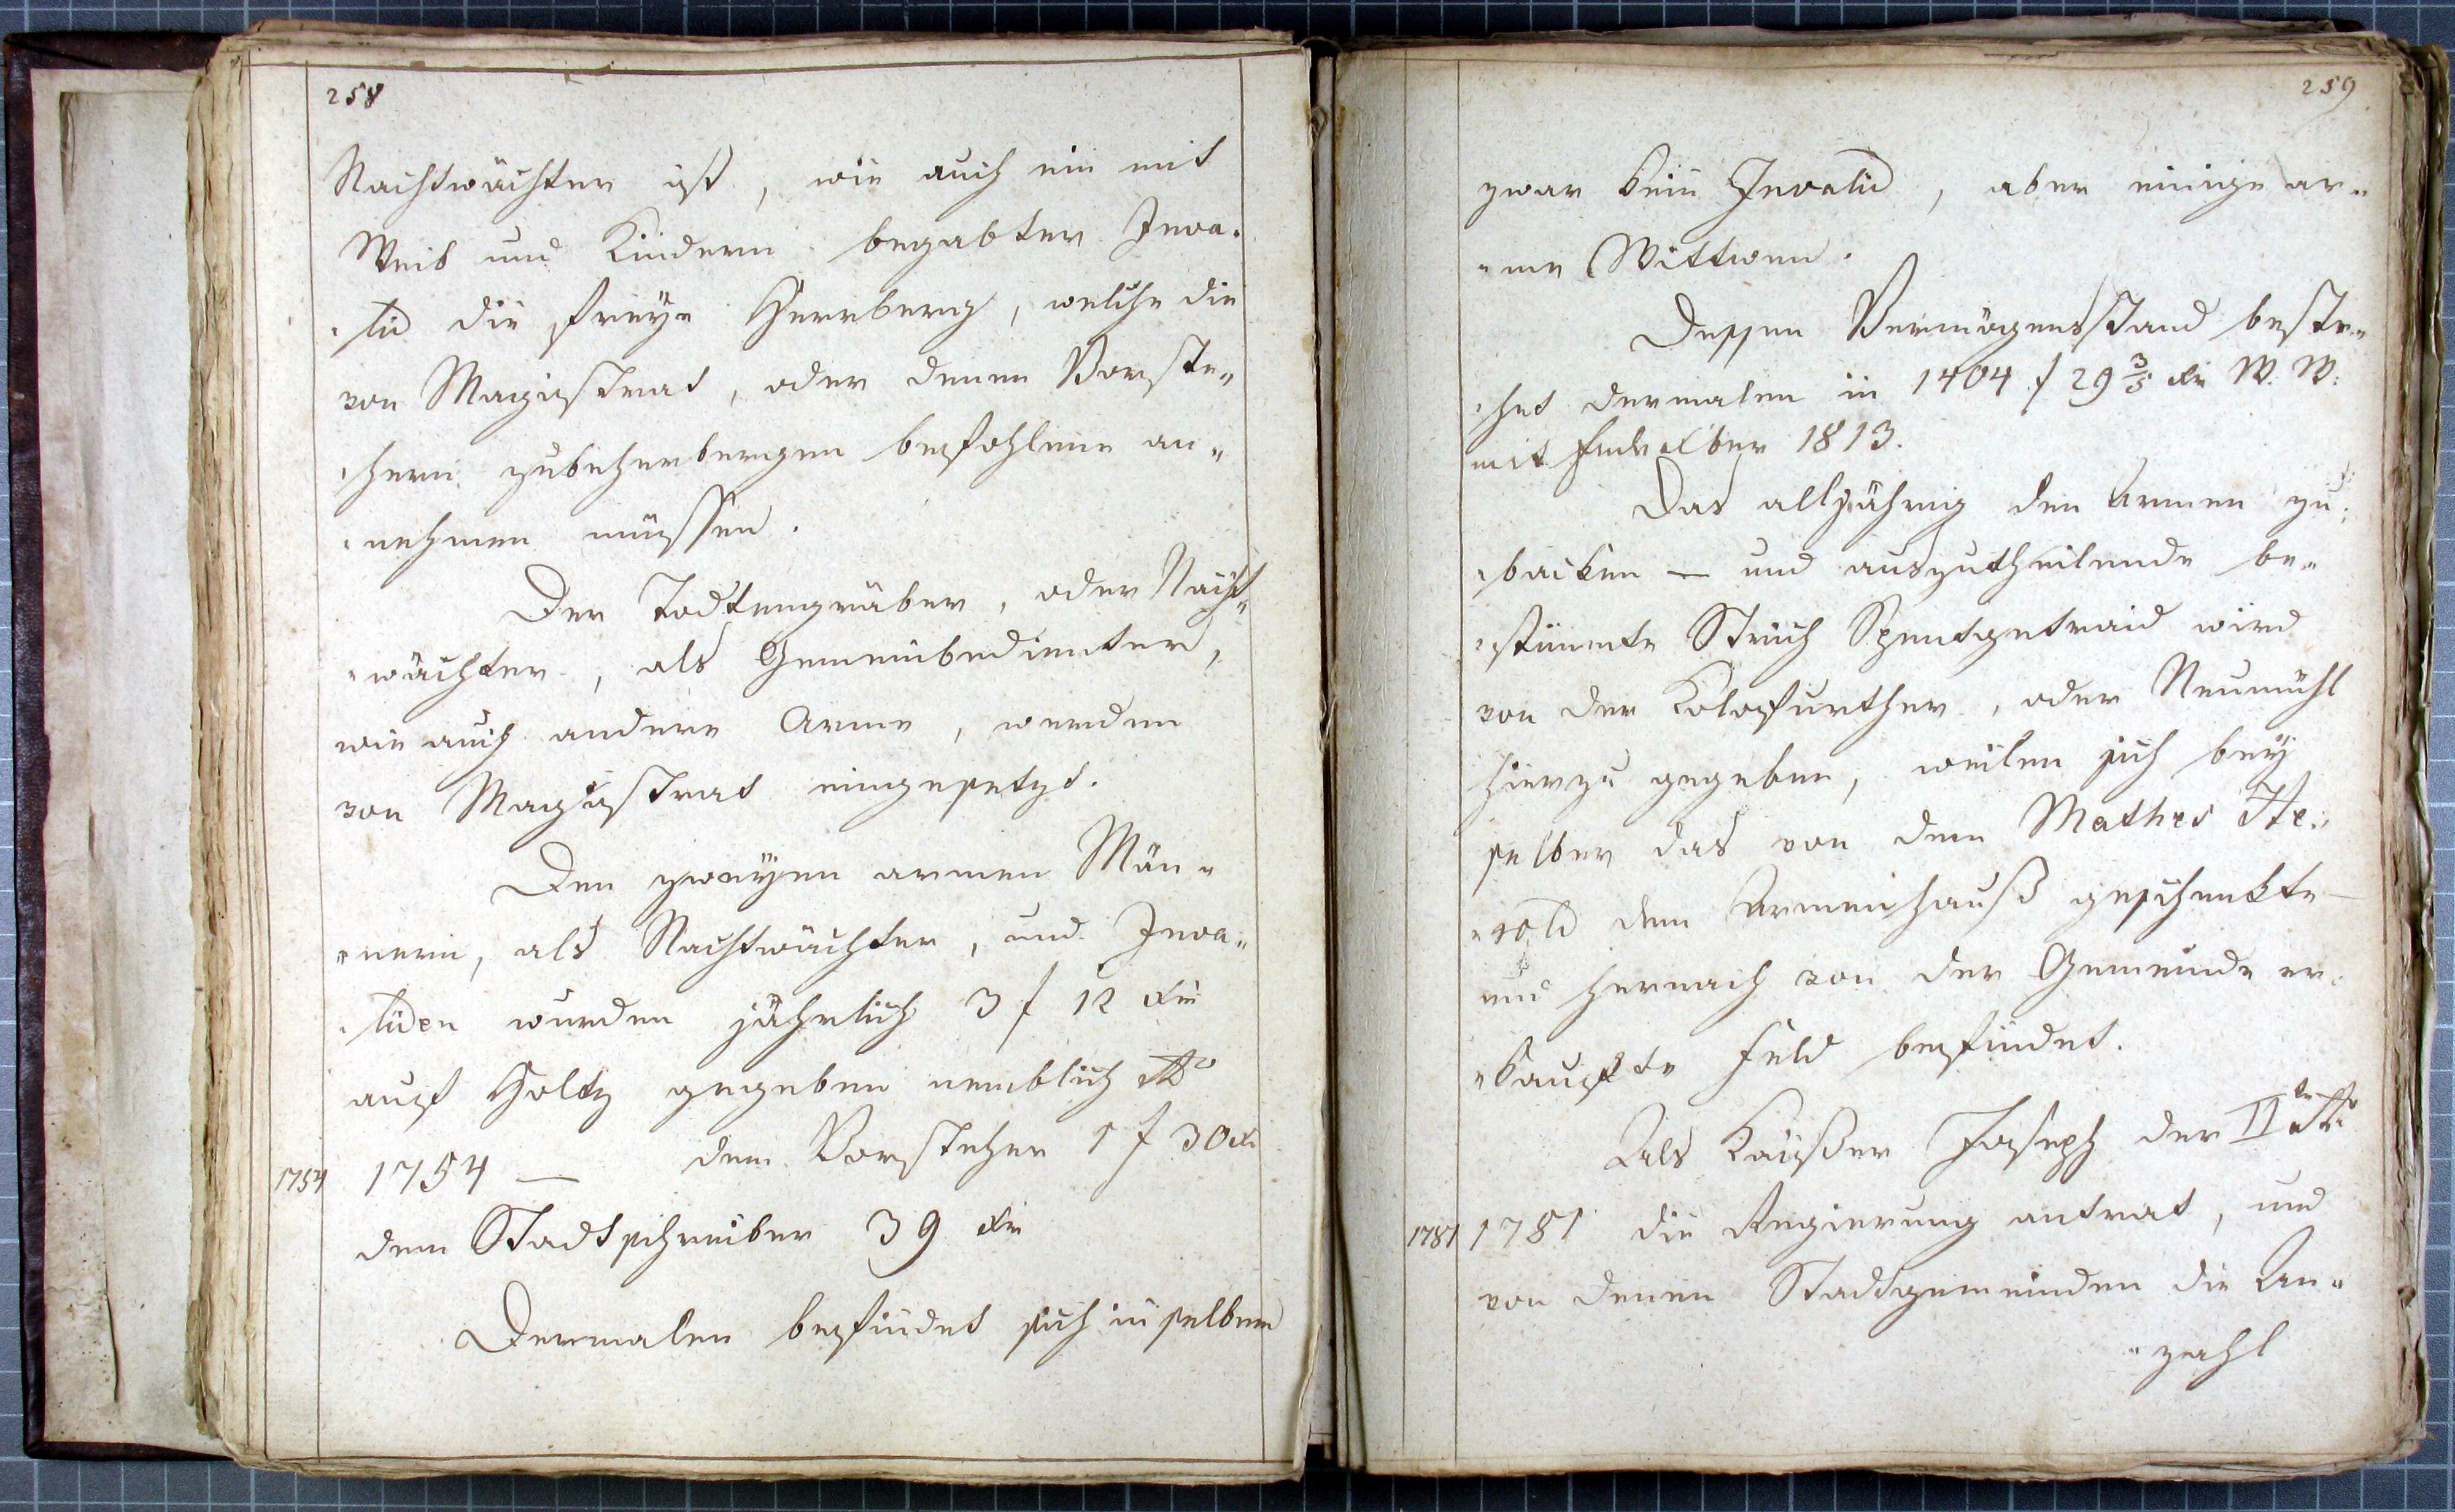 258
Nachtwächter ist, wie auch ein mit
Weib und Kindern begabter Inva-
-lid die freye Herrberg, welche die
von Magistrat, oder denen Vorste-
-hern zubeherbergen befohlene an-
-nehmen müssen.
Der Todtengräber, oder Nacht-
-wächter, als Gemeinbedienter,
wie auch andere Arme, werden
von Magistrat eingesetzt.
Den zweyen armen Män-
-nern, als Nachtwächter, und Inva-
-liden wurden jährlich 3 f 12 xr
auf Holtz gegeben nemblich Ao
1754 1754 — dem Vorsteher 1 f 30 xr
dem Stadtschreiber 39 xr
Dermalen befindet sich in selben
259
zwar kein Invalid, aber einige ar-
-me Wittwen.
Dessen Vermögensstand beste-
-het dermalen in 1404 f 29 3/5 xr W: W:
mit Ende 1813.
Das alljährig den Armen zu-
-backen — und auszutheilende be-
-stimmte Strich Spentgetraid wird
von der, oder Neumühl
hierzu gegeben, weilen sich bey
selber das von dem Mathes He-
-rold dem Armenhauß geschenkte —
und hernach von der Gemeinde er-
-kaufte Feld befindet.
Als Kaÿßer Joseph der II te Ao
1781 1781 die Regierung antrat, und
von denen Stadtgemeinden die An-
-zahl